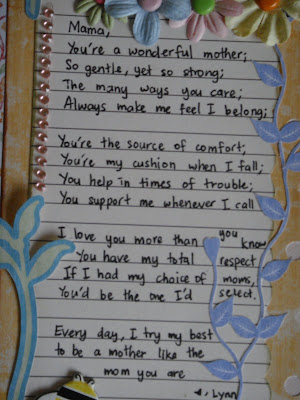 Mama,
You're a wonderful mother;
So gentle, yet so strong;
The many ways you care;
Always make me feel I belong;
You're the source of comfort;
You're my cushion when I fall;
You help in times of trouble;
You support me whenever I call
I love you more than you know
You have my total respect
If I had my choice of moms,
You'd be the one I'd select.
Every day, I try my best
to be a mother like the
mom you are
♥, Lynn